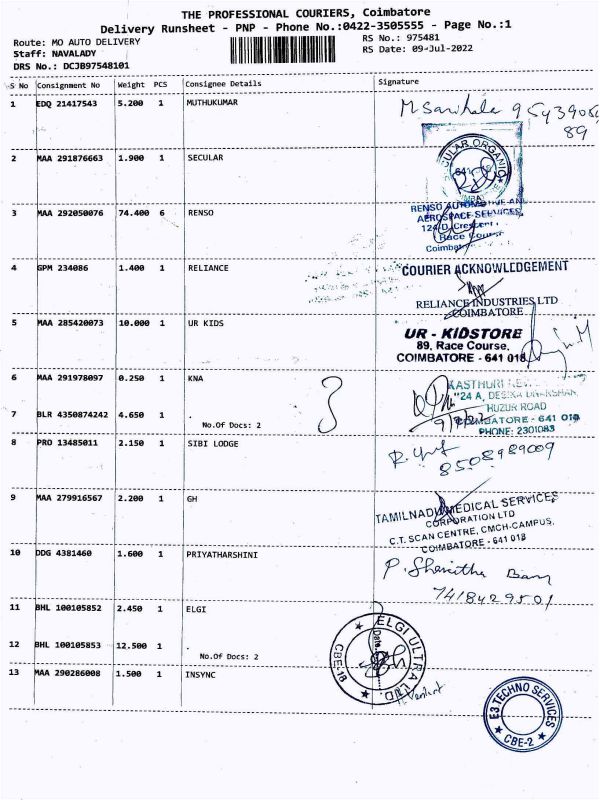 THE PROFESSIONAL COURIERS, Coimbatore
Delivery Runsheet - PNP - Phone No.:0422-3505555 - Page No.:1
Route: MO AUTO DELIVERY
RS No.: 975481
Staff: NAVALADY
RS Date: 09-Jul-2022
DRS No.: DCJB97548101
S No Consignment No Weight PCS Consignee Details Signature
1 EDQ 21417543 5.200 1 MUTHUKUMAR
89
2 MAA 291876663 1.900 1 SECULAR
3 MAA 292050076 74.400 6 RENSO
RENSO AUTOMOTIVE AND
AEROSPACE SERVICES,
Race Course
4 GPM 234086 1.400 1 RELIANCE
COURIER ACKNOWLEDGEMENT
RELIANCE INDUSTRIES LTD
COIMBATORE
5 MAA 285420073 10.000 1 UR KIDS
UR - KIDSTORE
89, Race Course,
COIMBATORE - 641 018
6 MAA 291978097 0.250 1 KNA
KASTHURI
HUZUR ROAD
COIMBATORE - 641 018
PHONE: 2301083
7 BLR 4350874242 4.650 1 .
No.Of Docs: 2
8 PRO 13485011 2.150 1 SIBI LODGE
8508989009
9 MAA 279916567 2.200 1 GH
TAMILNADU MEDICAL SERVICES
CORPORATION LTD
C.T. SCAN CENTRE, CMCH-CAMPUS,
COIMBATORE - 641 018
10 DDG 4381460 1.600 1 PRIYATHARSHINI
7418429501
11 BHL 100105852 2.450 1 ELGI
ELGI ULTRA LTD.
CBE-18
Date
12 BHL 100105853 12.500 1 .
No.Of Docs: 2
13 MAA 290286008 1.500 1 INSYNC
E3 TECHNO SERVICES
CBE-2